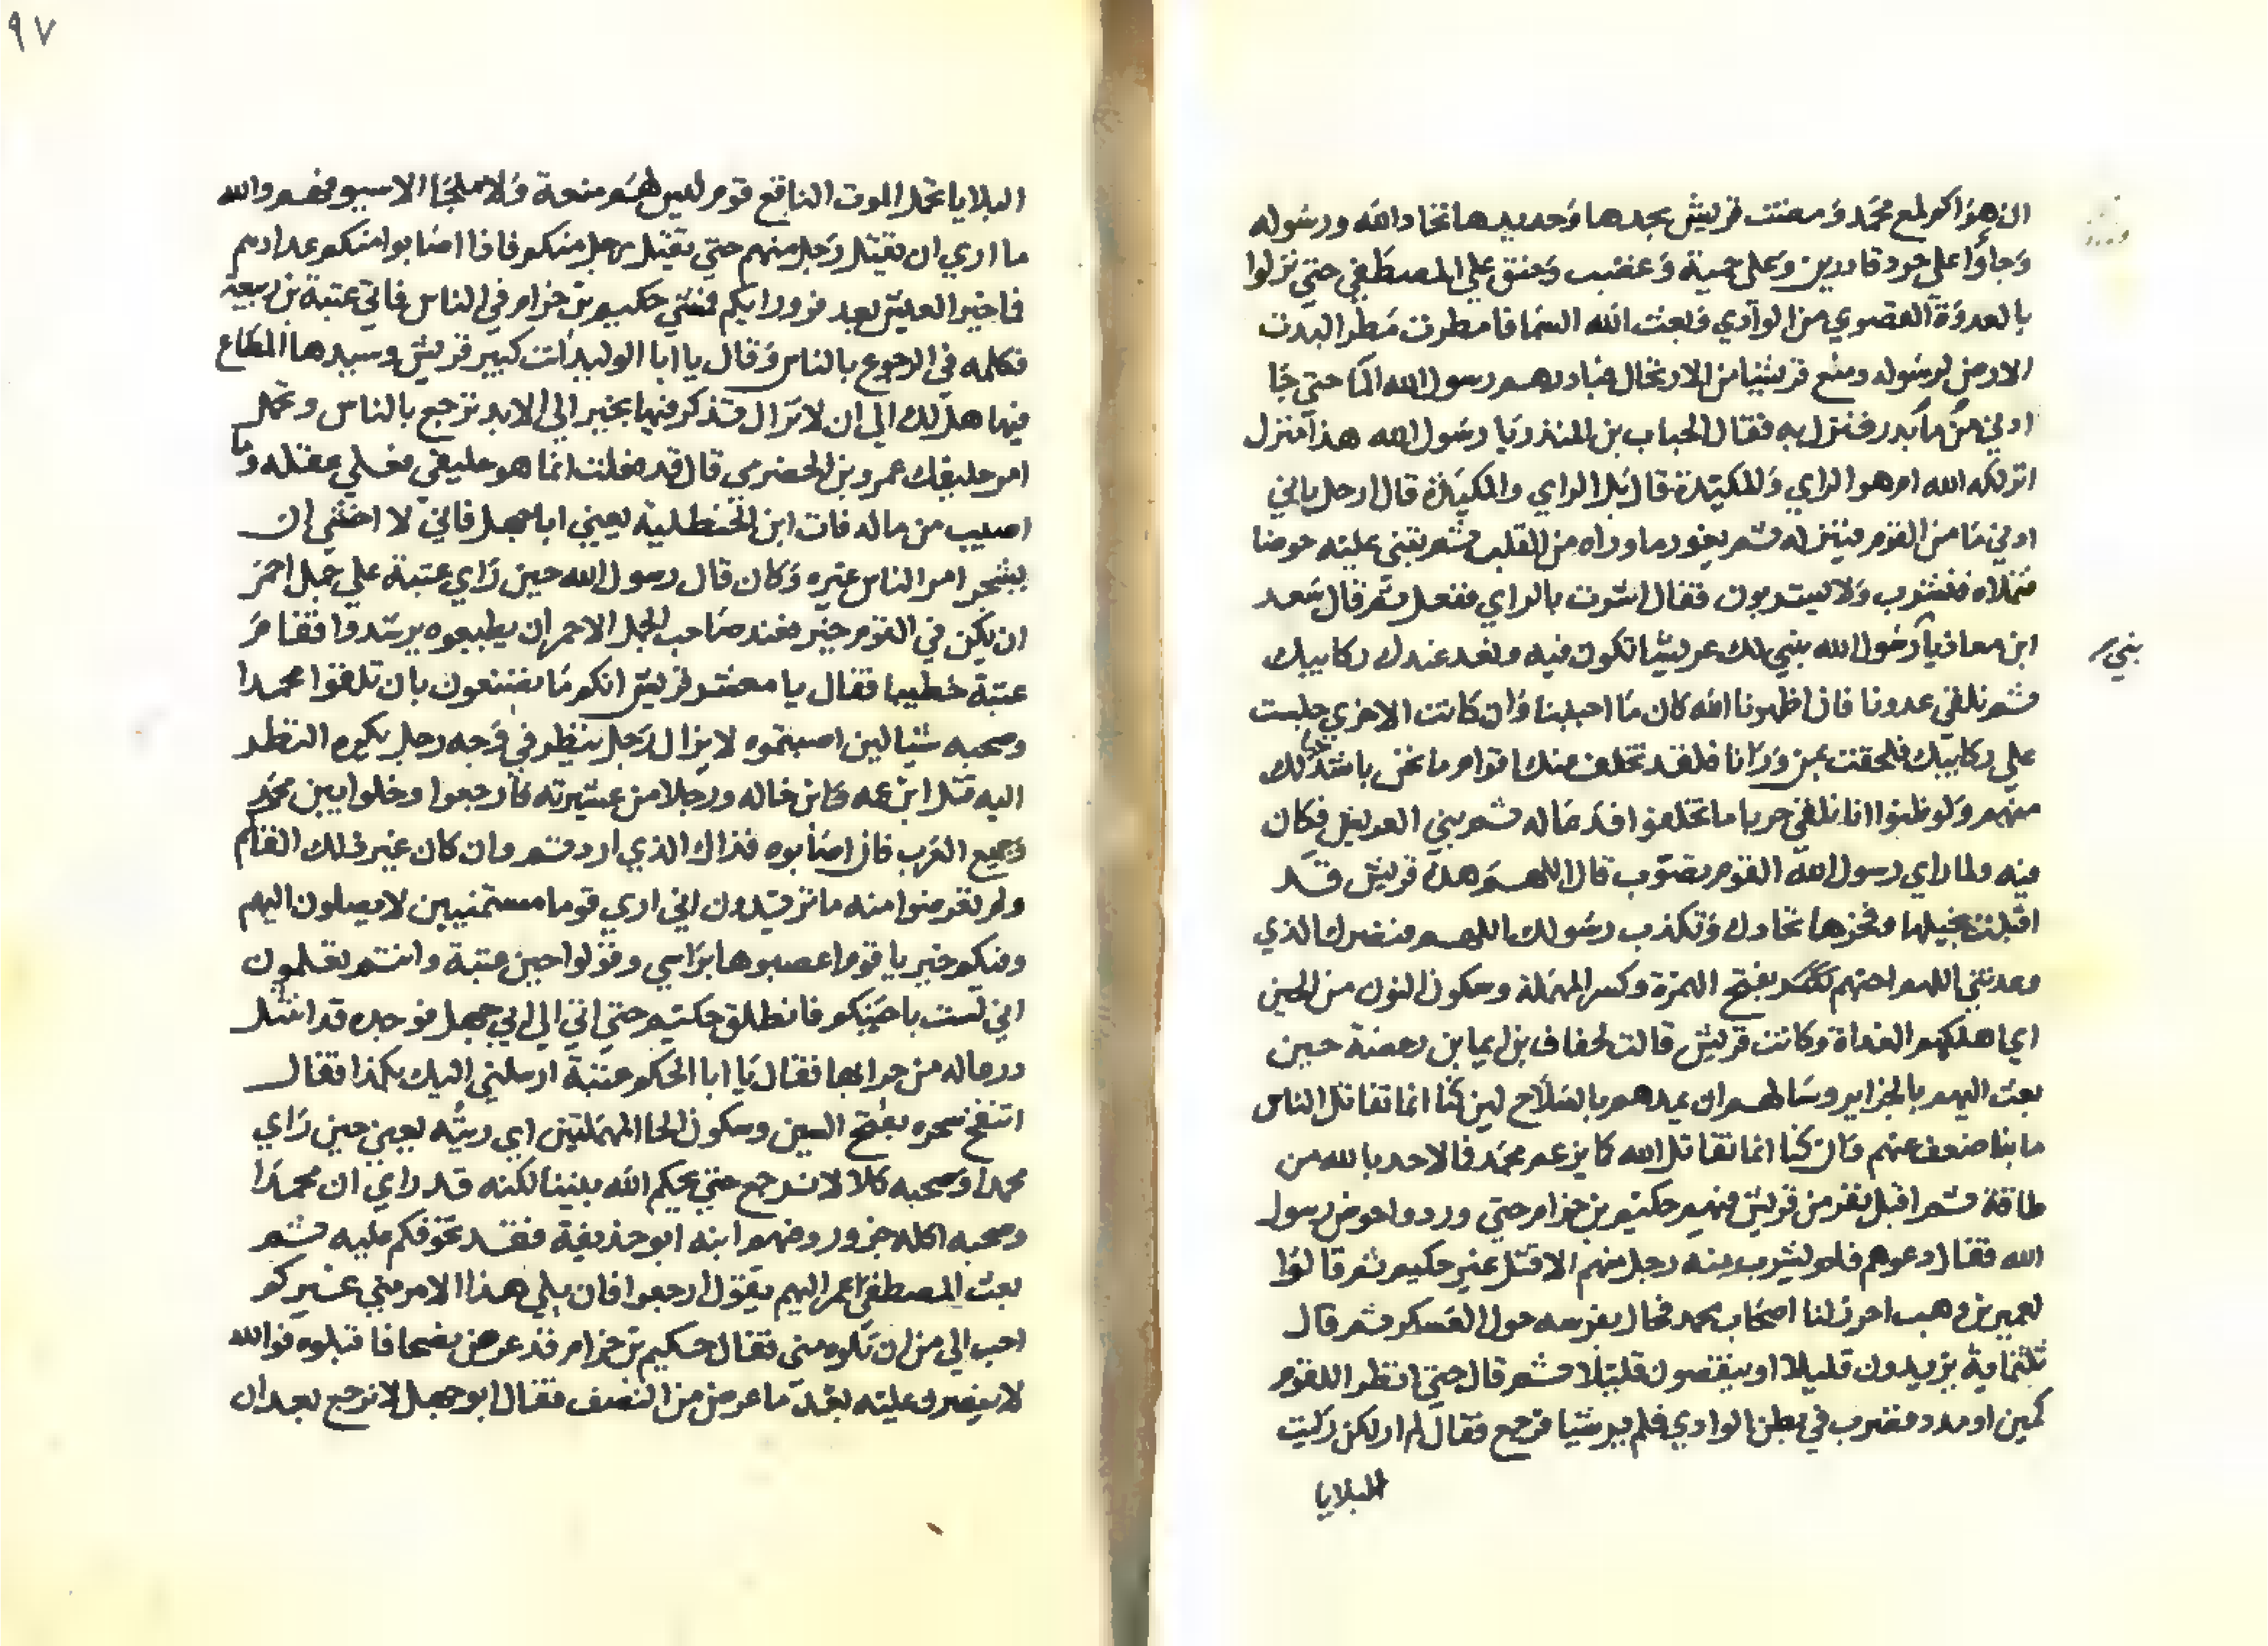 ان هواكم لمع محمد ومضت قريش بجدها وحديدها تحاد الله ورسوله
وجاؤا على حرد قادرين وعلى حمية وغضب وحنق على المصطفي حتي نزلوا
بالعدوة القصوي من الوادي وبعث الله السما فامطرت مطرا لبدت
الارض لرسوله ومنع قريشا من الارتحال فبادرهم رسول الله الما حتي جا
ادني من ما بدر فنزل به فقال الحباب بن المنذر يا رسول الله هذا منزل
انزلكه الله ام هو الراي والمكيدة قال بل الراي والمكيدة قال ارحل بنا الي
ادني ما من القوم فننزله ثم نغور ما وراه من القلب ثم نبني عليه حوضا
فنملاه فنشرب ولا يشربون فقال اشرت بالراي ففعل ثم قال سعد
ابن معاذ يا رسول الله نبني لك عريشا تكون فيه ونعد عندك ركايبك
ثم نلقي عدونا فان اظهرنا الله كان ما احببنا وان كانت الاخري جلست
علي ركايبك فلحقت بمن ورانا فلقد تخلف عنك اقوام ما نحن باشد حبا لك
منهم ولو ظنوا انا نلقي حربا ما تخلفوا فدعا له ثم بني العريش فكان
فيه ولما راي رسول الله القوم تصوب قال اللهم هذه قريش قد
اقبلت بخيلها وفخرها تحادك وتكذب رسولك اللهم فنصرك الذي
وعدتني اللهم احنهم بفتح الهمزة وكسر المهملة وسكون النون من الحين
اي اهلكهم الغداة وكانت قريش قالت لخفاف بن ايما بن رحضة حين
بعث اليهم بالجزاير وسالهم ان يمدهم بالسلاح لين كنا انما نقاتل الناس
ما بنا ضعف عنهم وان كنا انما نقاتل الله كما يزعم محمد فما لاحد بالله من
طاقة ثم اقبل نفر من قريش فيهم حكيم بن حزام حتي وردوا حوض رسول
الله فقال دعوهم فلم يشرب منه رجل منهم الا قتل غير حكيم ثم قالوا
لعمير بن وهب احرز لنا اصحاب محمد فجال بفرسه حول العسكر ثم قال
ثلثماية يزيدون قليلا او ينقصون قليلا ثم قال حتي انظر اللقوم
كمين او مدد فضرب في بطن الوادي فلم ير شيا فرجع فقال لم ار لكن رايت
البلايا
بني
٩٧
البلايا تحمل الموت الناقع قوم ليس لهم منعة ولا ملجا الا سيوفهم والله
ما اري ان يقتل رجل منهم حتي يقتل رجل منكم فاذا اصابوا منكم عدادهم
فما خير العيش بعد فروا رايكم فمشي حكيم بن حزام في الناس فاتي عتبة بن ربيعة
فكلمه في الرجوع بالناس وقال يا ابا الوليد انت كبير قريش وسيدها المطاع
فيها هل لك الي ان لا تزال تذكر فيها بخير الي الابد ترجع بالناس وتحمل
امر حليفك عمرو بن الحضرمي قال قد فعلت انما هو حليفي فعلي عقله وما
اصيب من ماله فات ابن الحنظلية يعيني ابا جهل فاني لا اخشي ان
يشجر امر الناس غيره وكان قال رسول الله حين راي عتبة علي جمل احمر
ان يكن في القوم خير فعند صاحب الجمل الاحمر ان يطيعوه يرشدوا فقام
عتبة خطيبا فقال يا معشر قريش انكم ما تصنعون بان تلقوا محمدا
وصحبه شيا لين اصبتموه لا يزال رجل ينظر في وجه رجل يكره النظر
اليه قتل ابن عمه وابن خاله ورجلا من عشيرته فارجعوا وخلوا بين محمد
وجميع العرب فان اصابوه فذاك الذي اردتم وان كان غير ذلك الفاكم
ولم تعرضوا منه ما تريدون اني اري قوما مستميتين لا تصلون اليهم
وفيكم خير يا قوم اعصبوها براسي وقولوا جبن عتبة وانتم تعلمون
اني لست باجبنكم فانطلق حكيم حتي اتي الي ابي جهل فوجده قد انتثل
درعا له من جرابها فقال يا ابا الحكم عتبة ارسلني اليك بكذا فقال
انتفخ سحره بفتح السين وسكون الحا المهملتين اي ريته يعني حين راي
محمدا وصحبه كلا لا نرجع حتي يحكم الله بيننا لكنه قد راي ان محمدا
وصحبه اكلة جزور وفيهم ابنه ابو حذيفة فقد تخوفكم عليه ثم
بعث المصطفي عمر اليهم يقول ارجعوا فان يلي هذا الامر مني غيركم
احب الي من ان تلوه مني فقال حكيم بن حزام قد عرض نصحا فاقبلوه فوالله
لا تنصرون عليه بعد ما عرض من النصف فقال ابو جهل لا نرجع بعد ان